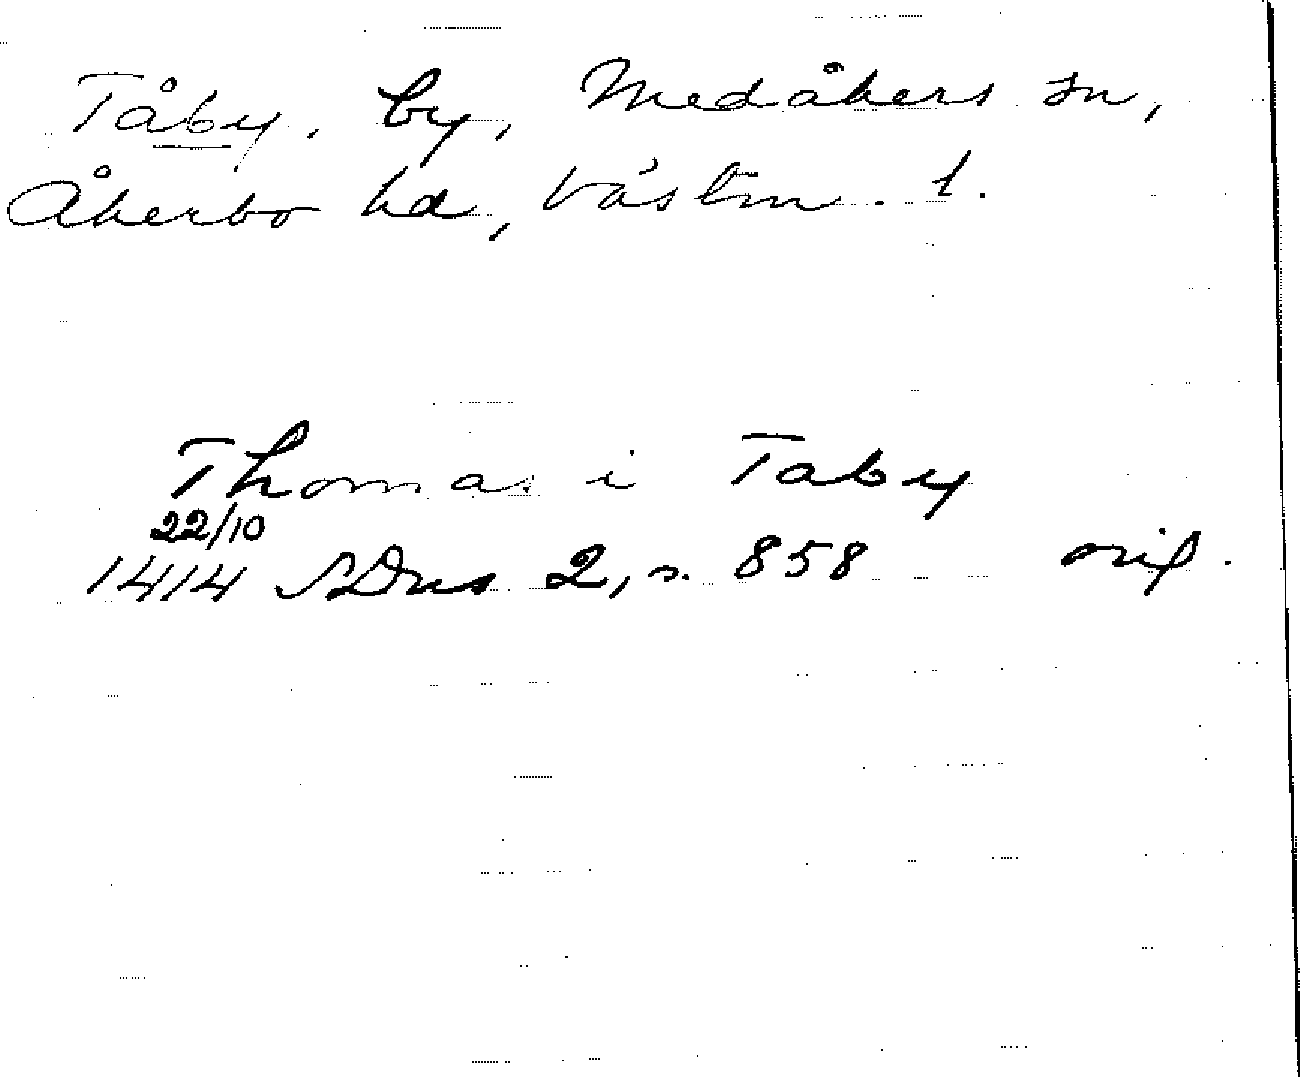 Tåby, by, Medåkers sn,
Åkerbo hd, Västm. l.
Thomas i Taby
22/10
1414 SDns 2, s. 858 orig.